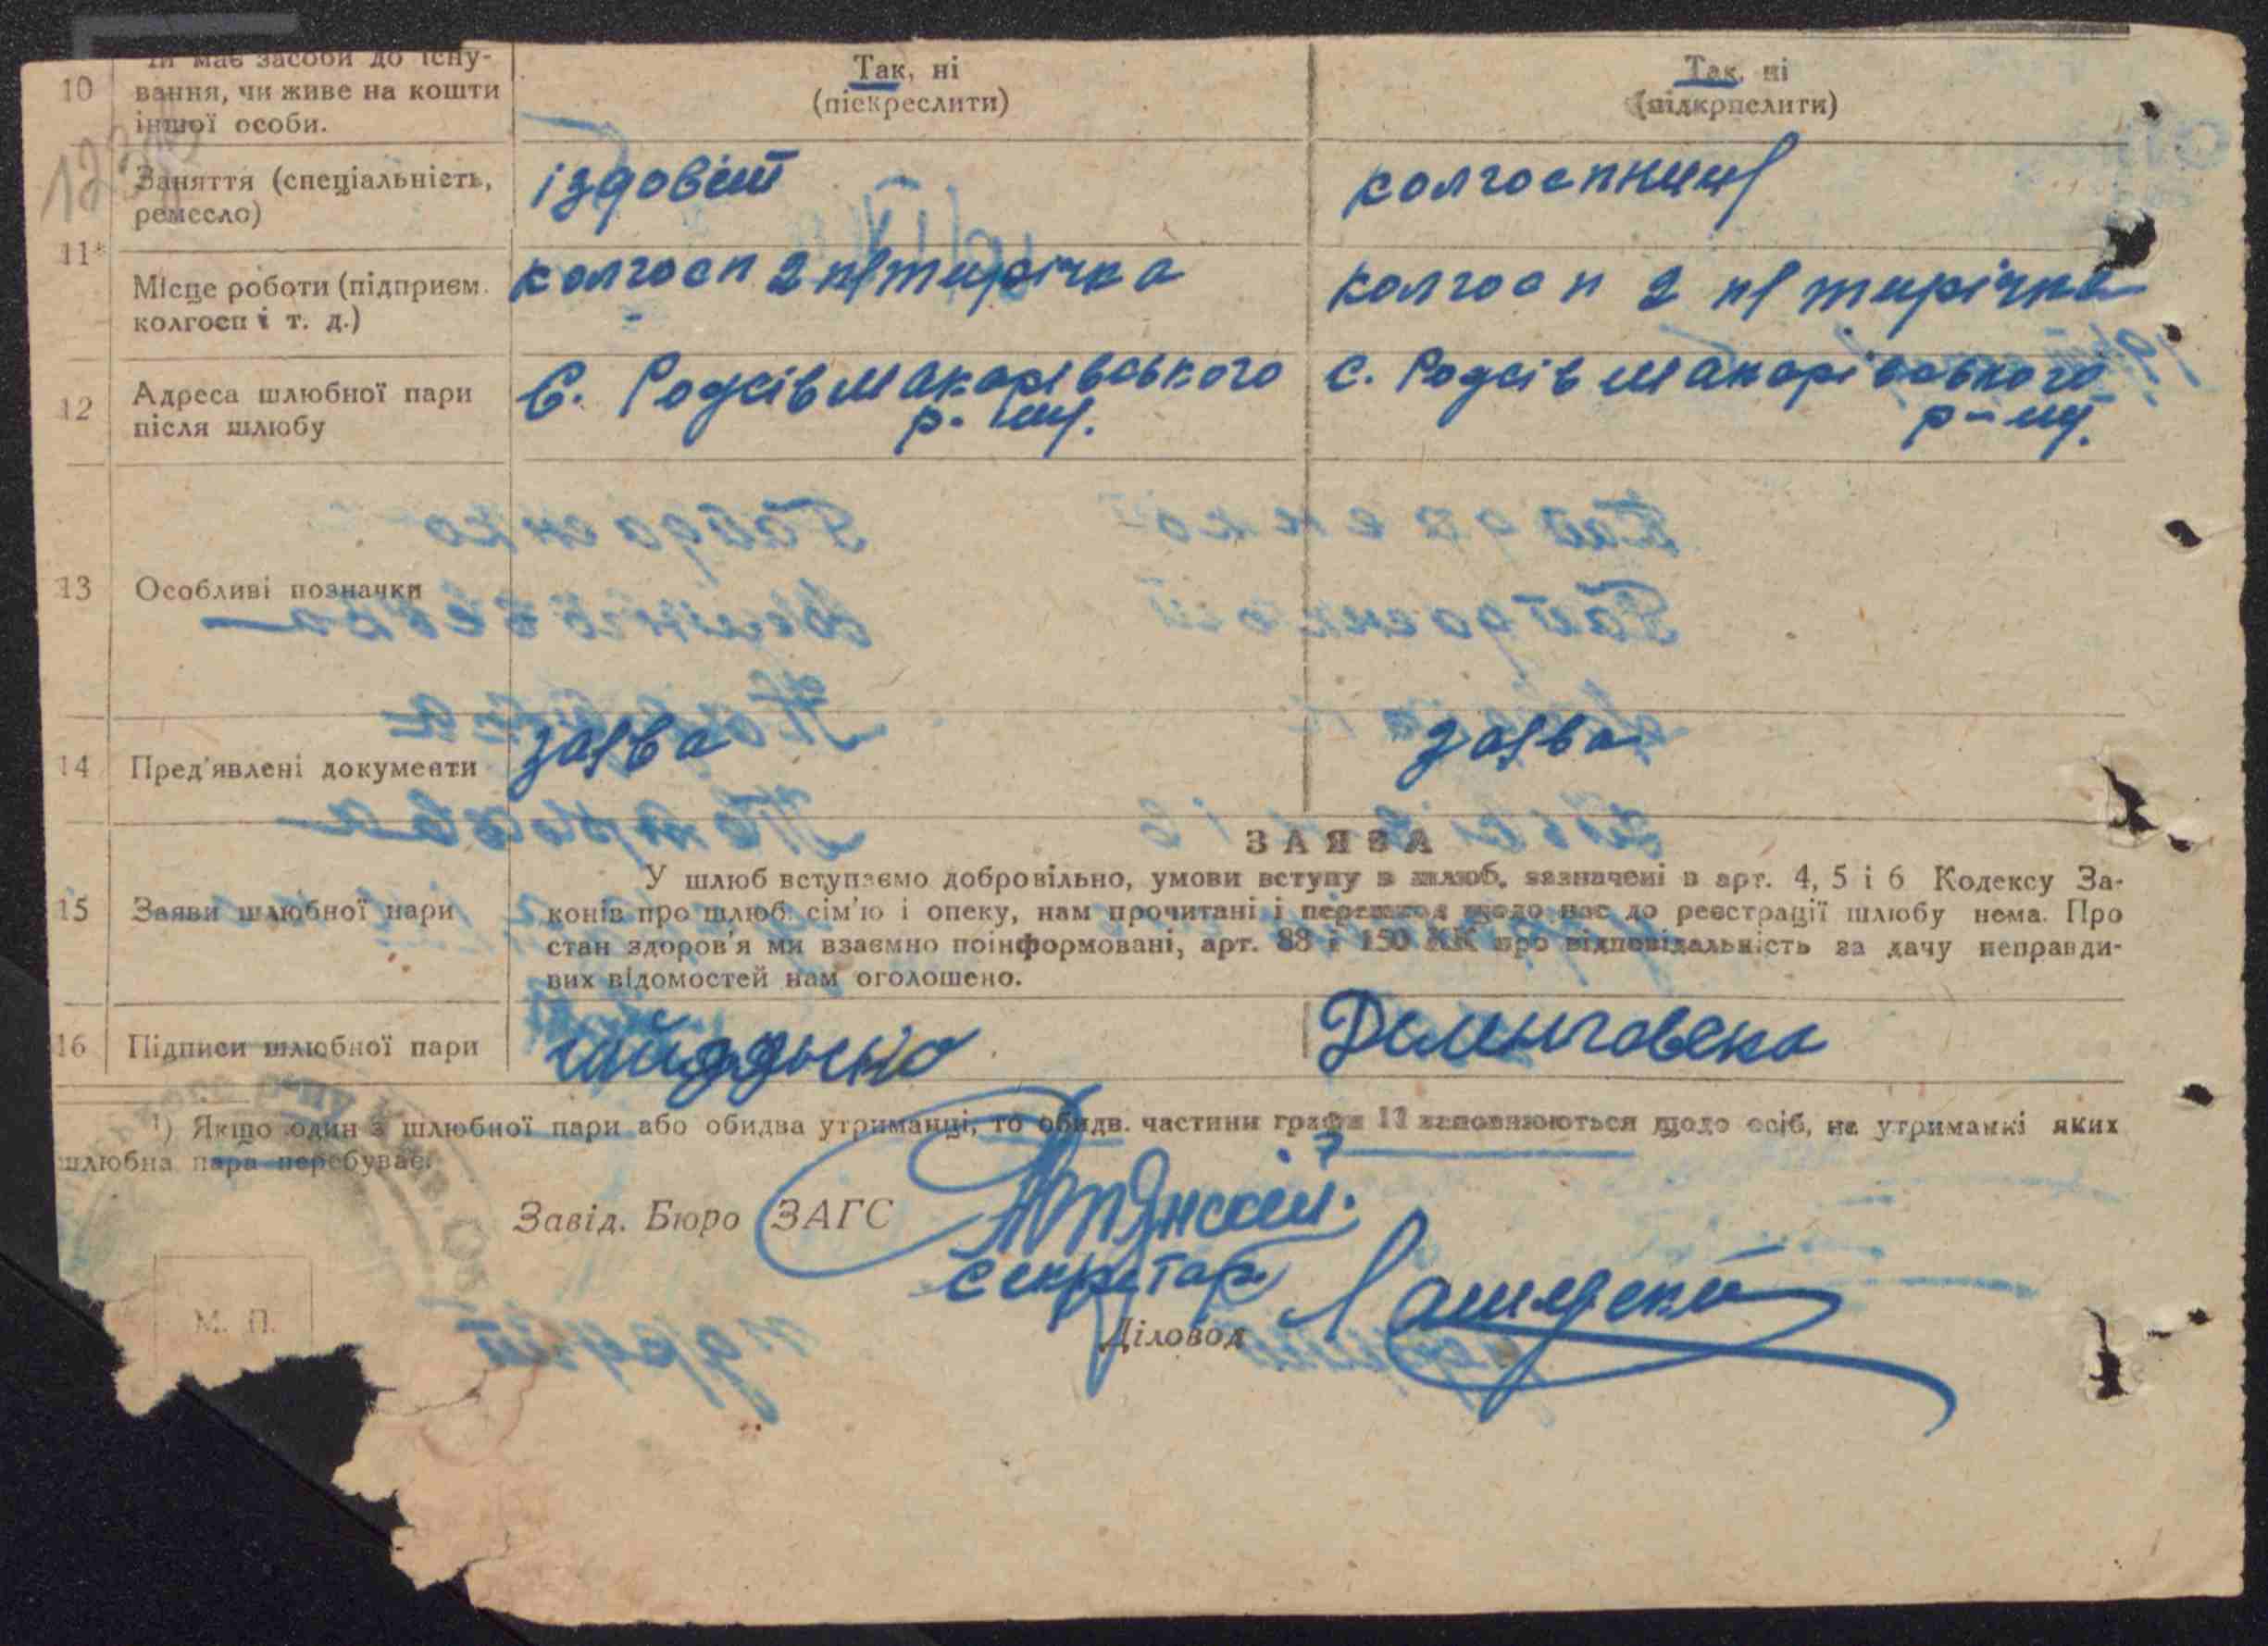 10
Чи має засоби до існу-
вання, чи живе на кошти
іншої особи.
Так, ні
(піскреслити)
Так, ні
(підкрпслити)
11*
Заняття (спеціальність,
ремесло)
їздовий
колгоспниця
Місце роботи (підприєм.
колгосп і т. д.)
колгосп 2 п'ятирічка
колгосп 2 п'ятирічка
12
Адреса шлюбної пари
після шлюбу
С. Макарівського
р-
с. Макарівського
р-
13
Особливі позначки
14
Пред'явлені документи
заява
заява
15
Заяви шлюбної пари
ЗАЯВА
У шлюб вступаємо добровільно, умови вступу в шлюб, зазначені в арт. 4, 5 і 6 Кодексу За-
конів про шлюб, сім'ю і опеку, нам прочитані і перешкод щодо нас до реєстрації шлюбу нема. Про
стан здоров'я ми взаємно поінформовані, арт. 88 і 150 КК про відповідальність за дачу неправди-
вих відомостей нам оголошено.
16
Підписи шлюбної пари
¹) Якщо один з шлюбної пари або обидва утриманці, то обидв. частини графи 11 заповнюються щодо осіб, на утриманні яких
шлюбна пара перебуває.
Завід. Бюро ЗАГС
секретар
Діловод
М. П.